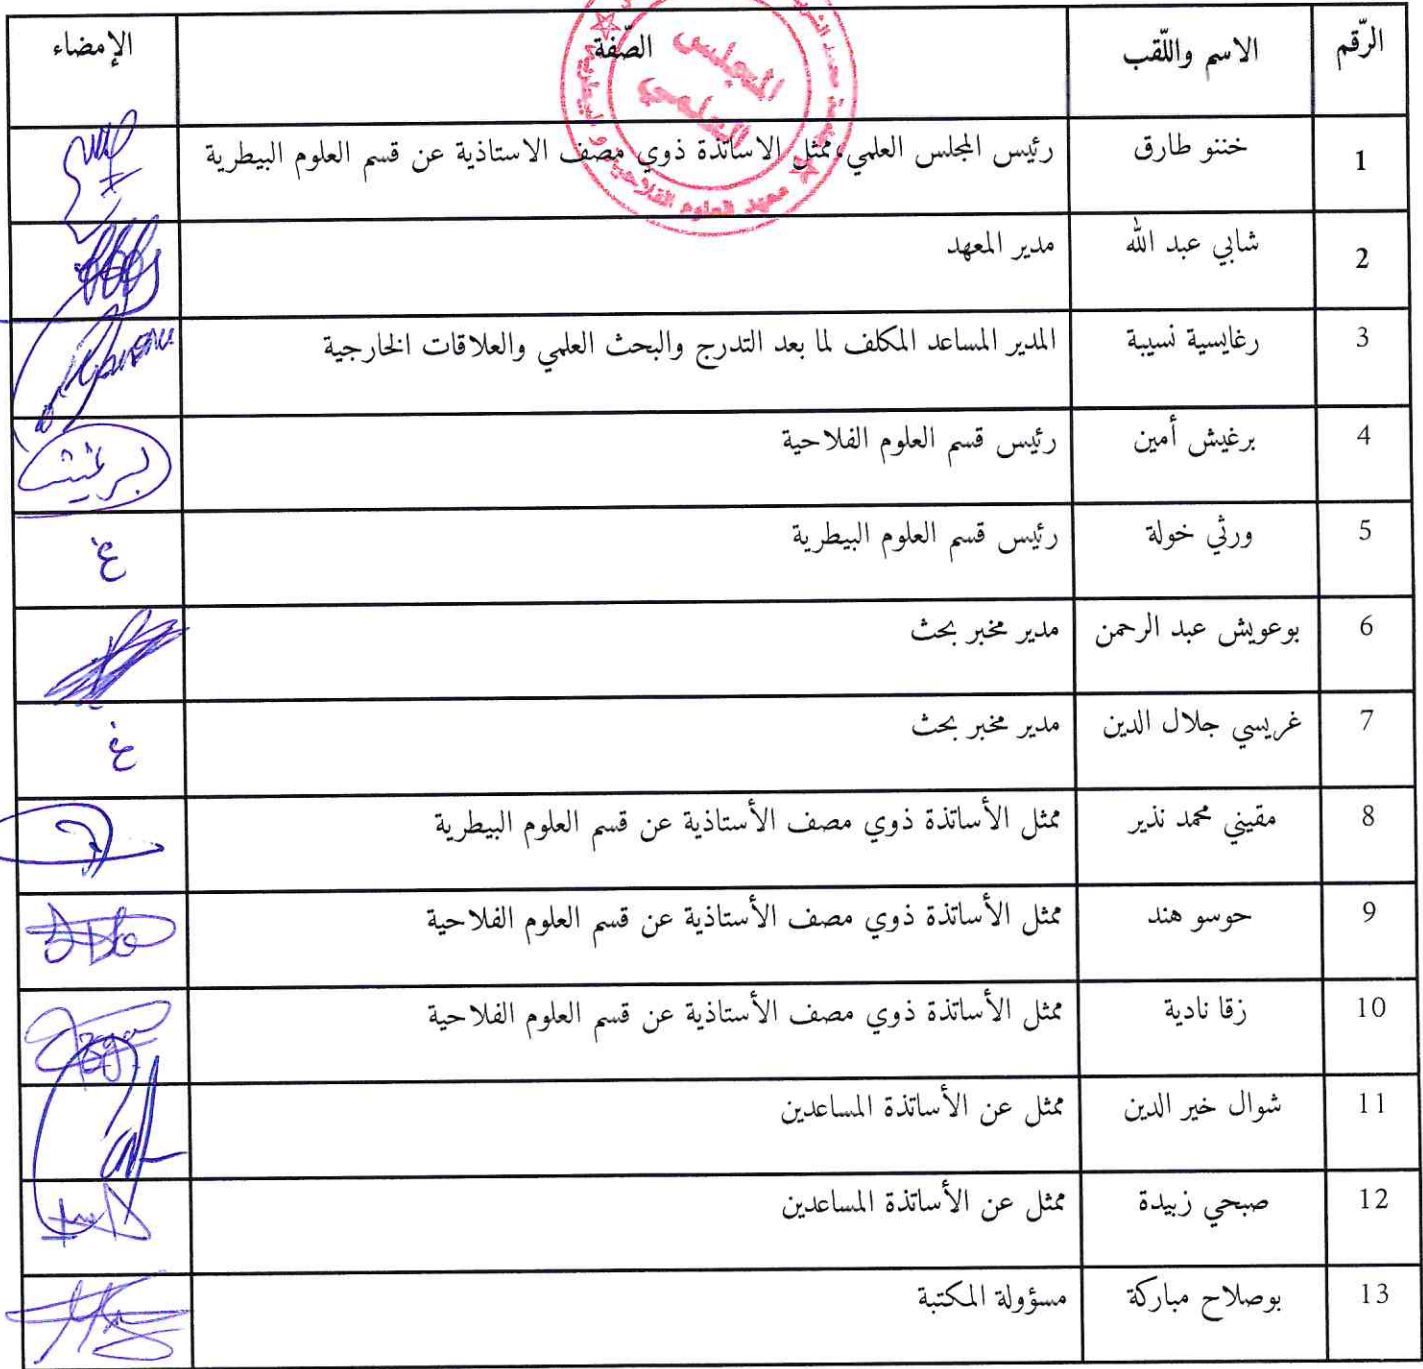 الرّقم الاسم واللّقب الصّفة الإمضاء
المجلس
العلمي
معهد العلوم الفلاحية و البيطرية
1 خننو طارق رئيس المجلس العلمي وممثل الاساتذة ذوي مصف الاستاذية عن قسم العلوم البيطرية
2 شابي عبد الله مدير المعهد
3 رغايسية نسيبة المدير المساعد المكلف لما بعد التدرج والبحث العلمي والعلاقات الخارجية
4 برغيش أمين رئيس قسم العلوم الفلاحية
5 ورثي خولة رئيس قسم العلوم البيطرية غ
6 بوعويش عبد الرحمن مدير مخبر بحث
7 غريسي جلال الدين مدير مخبر بحث غ
8 مقيني محمد نذير ممثل الأساتذة ذوي مصف الأستاذية عن قسم العلوم البيطرية
9 حوسو هند ممثل الأساتذة ذوي مصف الأستاذية عن قسم العلوم الفلاحية
10 زقا نادية ممثل الأساتذة ذوي مصف الأستاذية عن قسم العلوم الفلاحية
11 شوال خير الدين ممثل عن الأساتذة المساعدين
12 صبحي زبيدة ممثل عن الأساتذة المساعدين
13 بوصلاح مباركة مسؤولة المكتبة